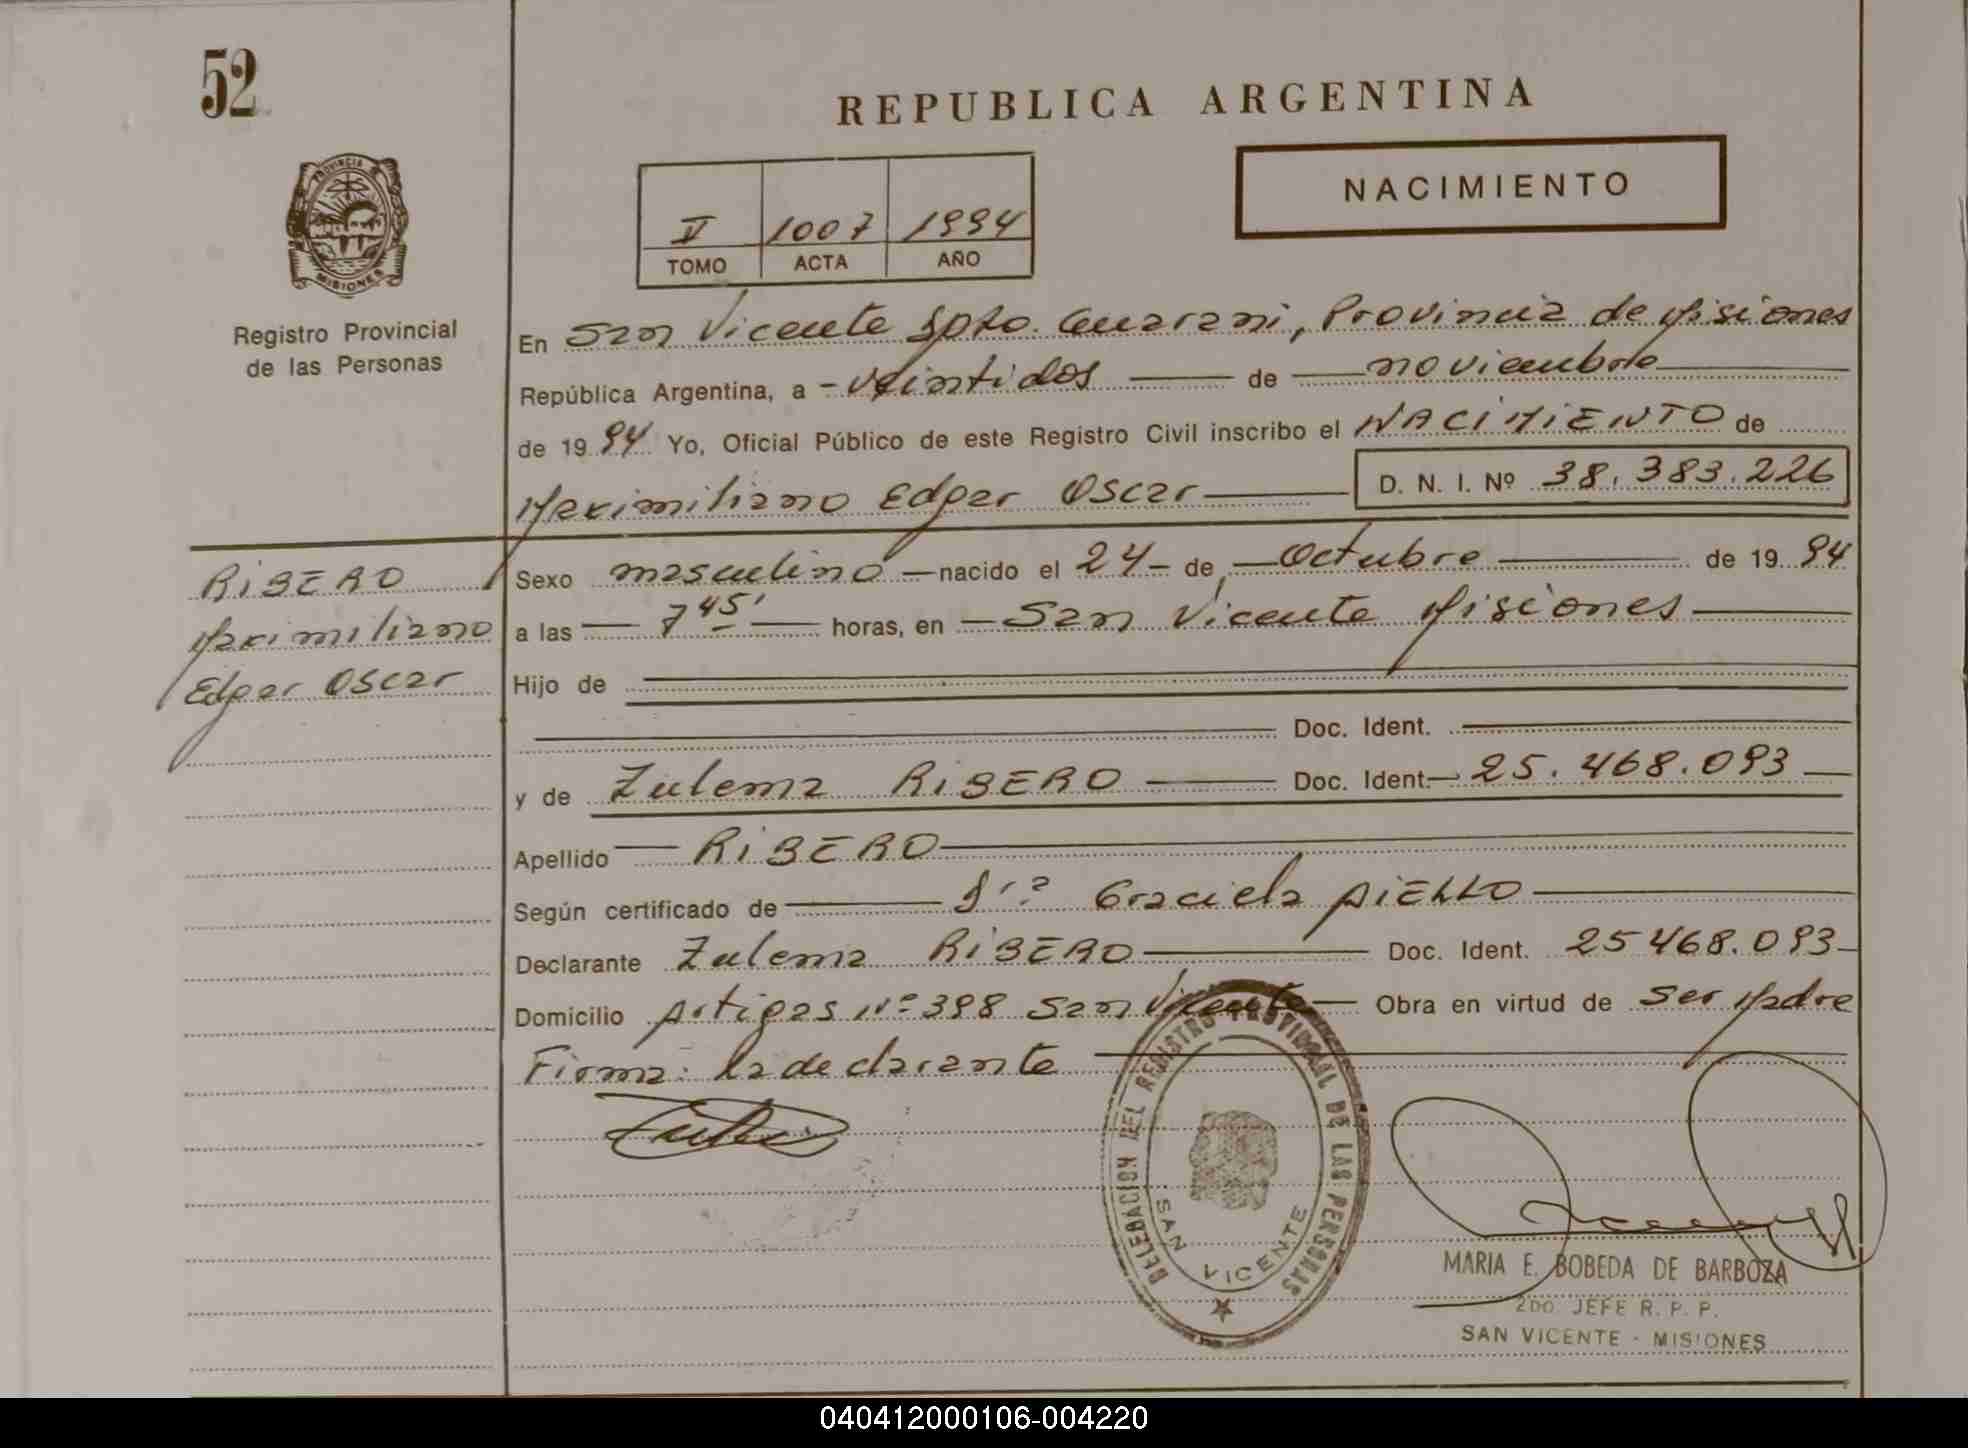 52
REPUBLICA ARGENTINA
NACIMIENTO
PROVINCIA
MISIONES
Registro Provincial
de las Personas
V 1007 1994
TOMO ACTA AÑO
En San Vicente Dpto. Guarani, Provincia de Misiones
República Argentina, a - veintidos de noviembre
de 1994 Yo, Oficial Público de este Registro Civil inscribo el NACIMIENTO de
Maximiliano Edgar Oscar D. N. I. Nº 38.383.226
RIBERO
Maximiliano
Edgar Oscar
Sexo masculino - nacido el 24 - de - Octubre de 1994
a las 7 45' horas, en - San Vicente Misiones
Hijo de
Doc. Ident.
y de Zulema RIBERO Doc. Ident. 25.468.093
Apellido RIBERO
Según certificado de Dra Graciela AIELLO
Declarante Zulema RIBERO Doc. Ident. 25468.093
Domicilio Artigas Nº 398 San Vicente Obra en virtud de ser Madre
Firma: la declarante
DELEGACION DEL REGISTRO PROVINCIAL DE LAS PERSONAS
SAN VICENTE
MARIA E. BOBEDA DE BARBOZA
2DO. JEFE R. P. P.
SAN VICENTE - MISIONES
040412000106-004220